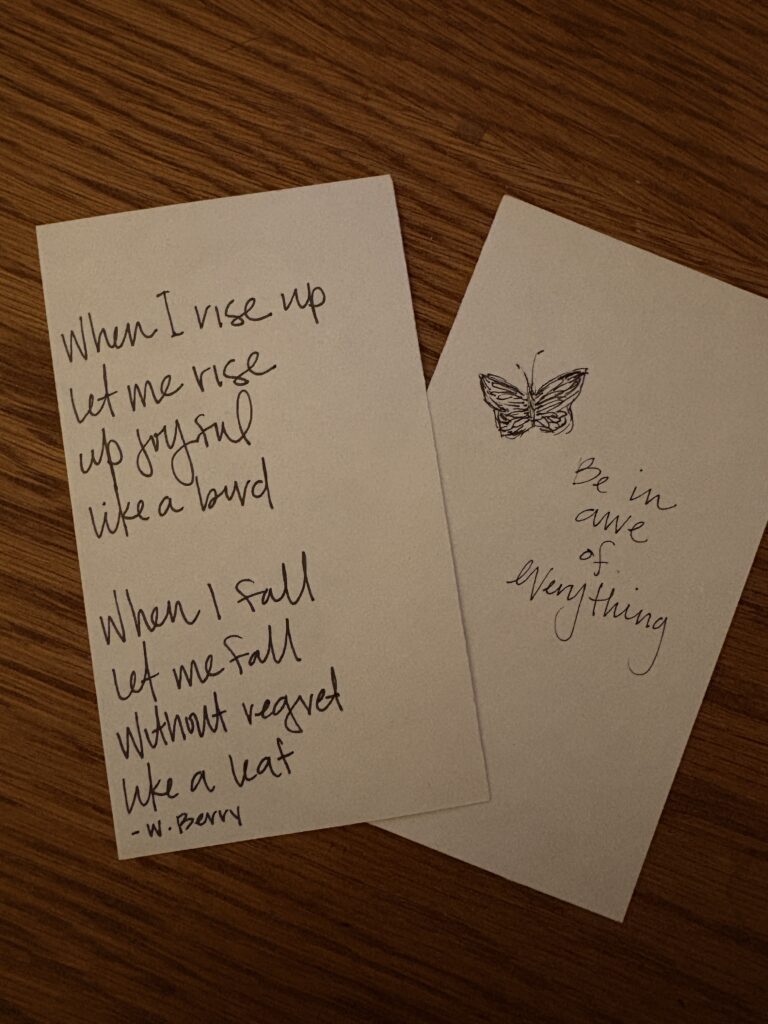 When I rise up
let me rise
up joyful
like a bird
When I fall
let me fall
without regret
like a leaf
- W. Berry
Be in
awe
of
everything